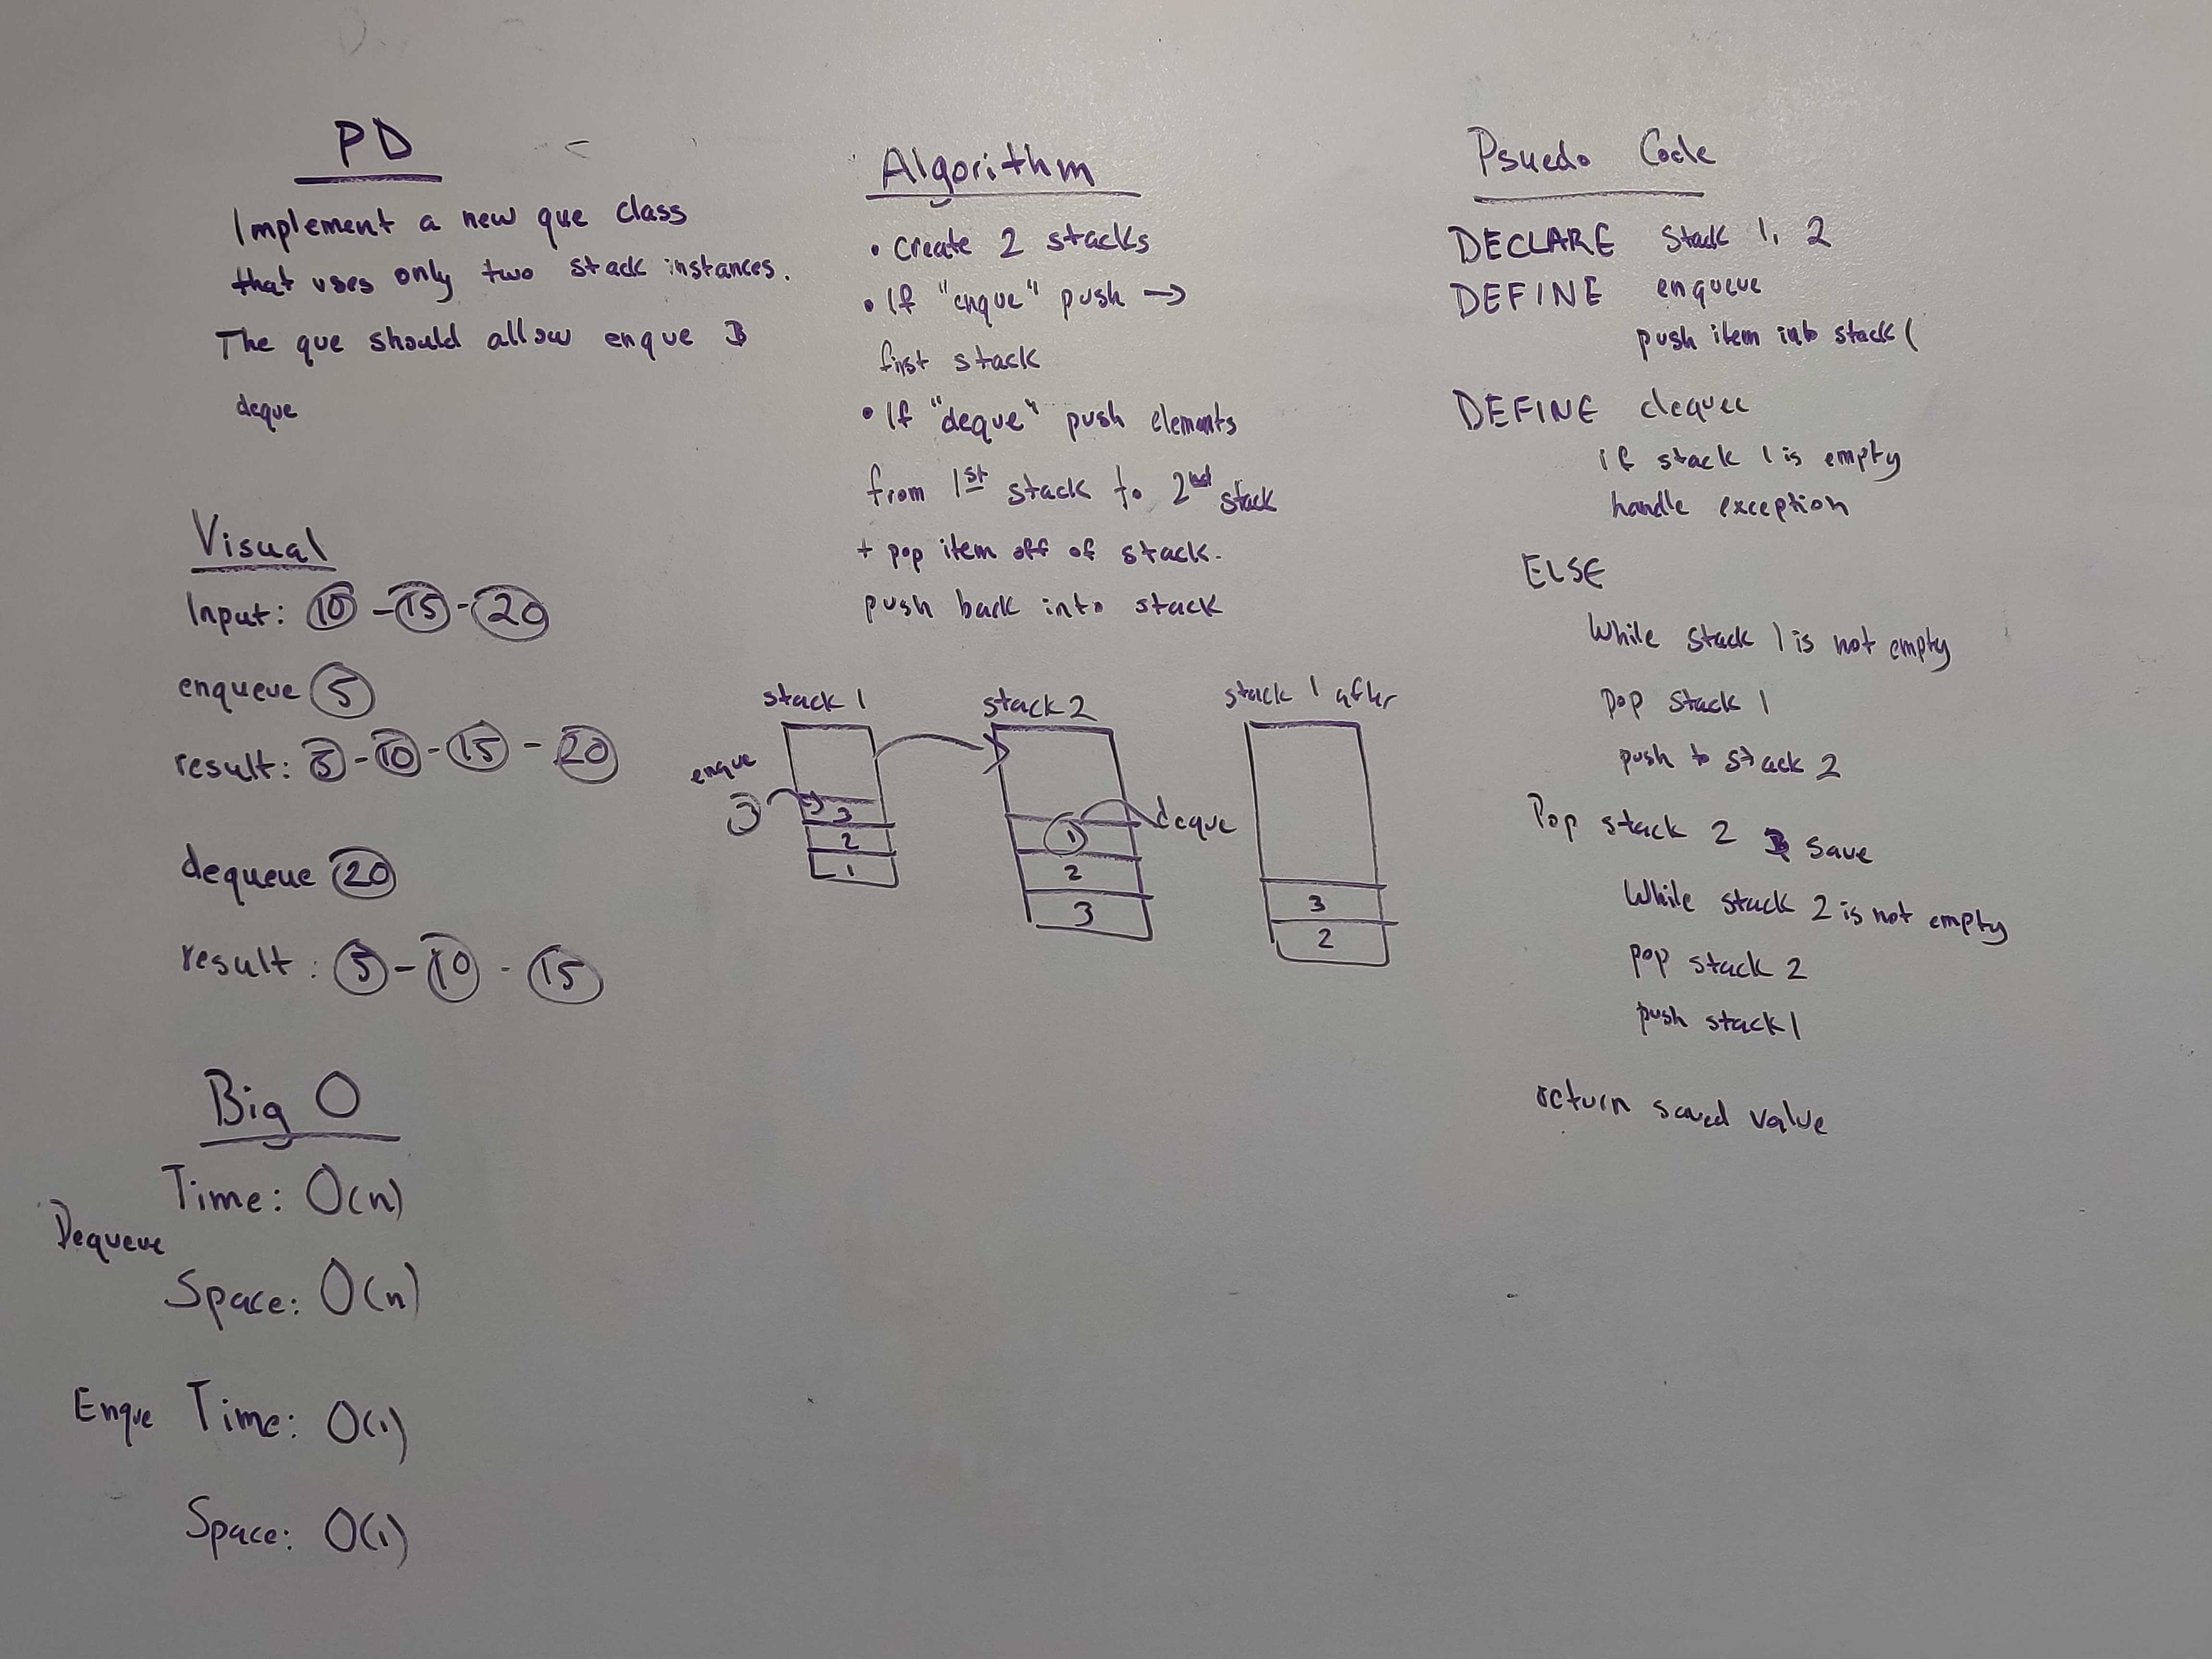 PD
Implement a new que class
that uses only two stack instances.
The que should allow enque &
deque
Visual
Input: 10 - 15 - 20
enqueue 5
result: 5 - 10 - 15 - 20
dequeue 20
result: 5 - 10 - 15
Big O
Time: O(n)
Dequeue
Space: O(n)
Enque Time: O(1)
Space: O(1)
Algorithm
• Create 2 stacks
• If "enque" push →
first stack
• If "deque" push elements
from 1st stack to 2nd stack
+ pop item off of stack.
push back into stack
stack 1
stack 2
stack 1 after
enque
3
3
2
1
1
2
3
deque
3
2
Psuedo Code
DECLARE stack 1, 2
DEFINE enqueue
push item into stack 1
DEFINE dequee
if stack 1 is empty
handle exception
ELSE
While stack 1 is not empty
pop stack 1
push to stack 2
Pop stack 2 & save
While stack 2 is not empty
pop stack 2
push stack 1
return saved value